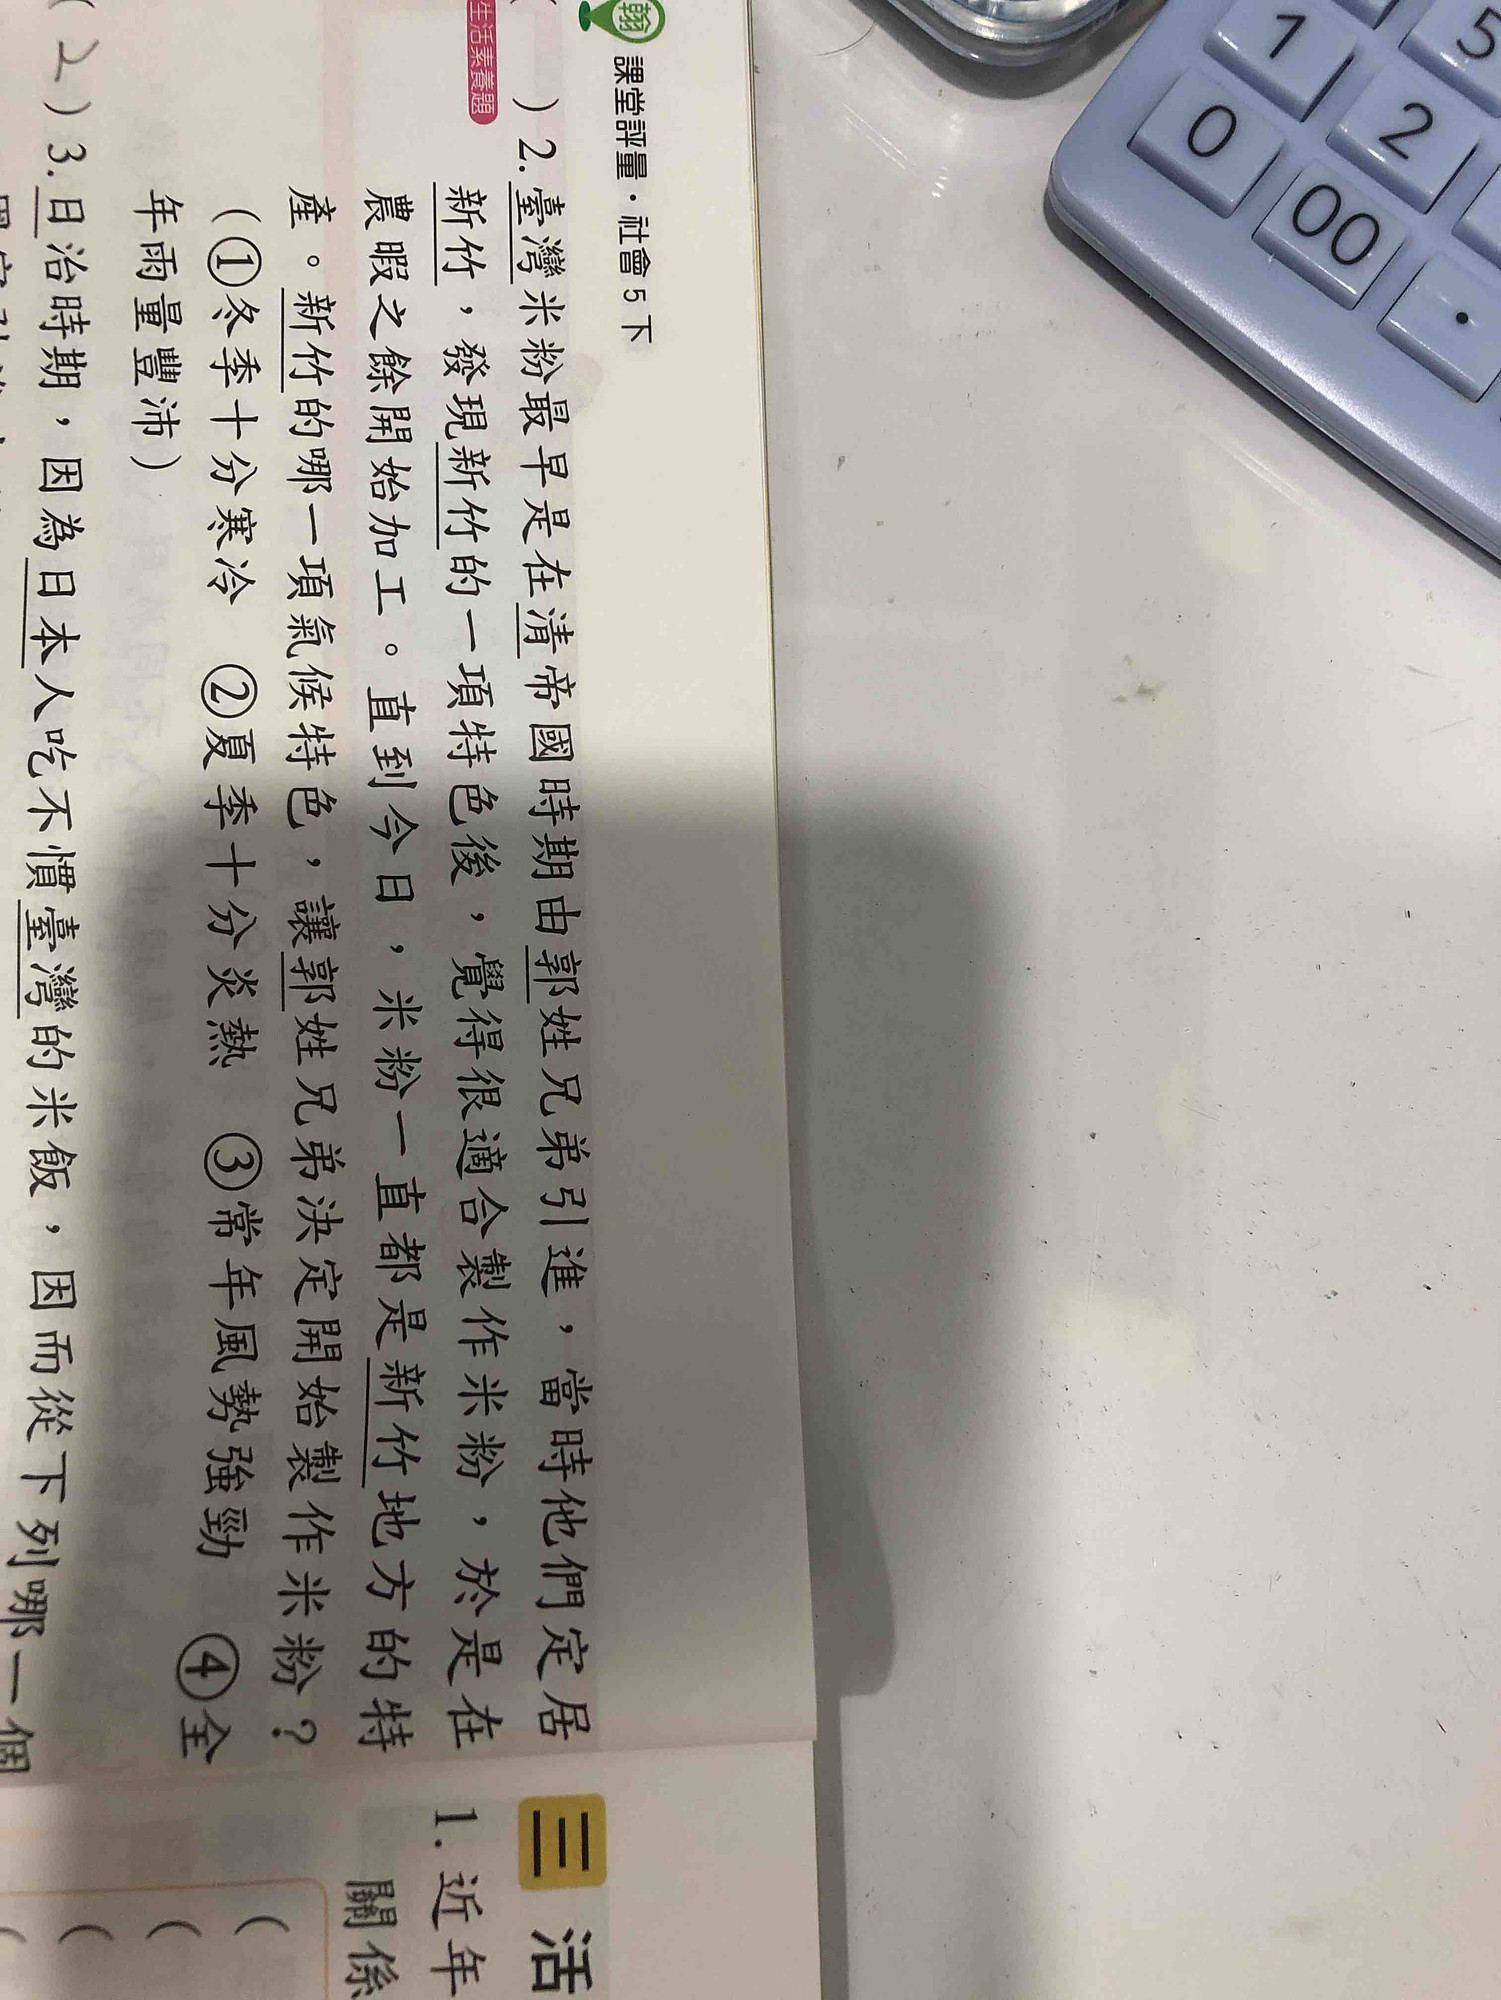 翰 課堂評量·社會5下
( )2.臺灣米粉最早是在清帝國時期由郭姓兄弟引進，當時他們定居
生活素養題
新竹，發現新竹的一項特色後，覺得很適合製作米粉，於是在
農暇之餘開始加工。直到今日，米粉一直都是新竹地方的特
產。新竹的哪一項氣候特色，讓郭姓兄弟決定開始製作米粉？
(①冬季十分寒冷 ②夏季十分炎熱 ③常年風勢強勁 ④全
年雨量豐沛)
(2)3.日治時期，因為日本人吃不慣臺灣的米飯，因而從下列哪一個
三 活
1.近年
關係
(
(
(
1
5
0
2
00
.